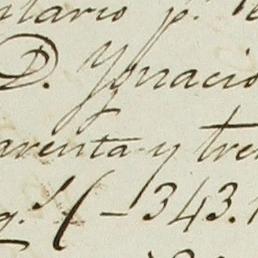 ntario p.
D. Ygnacio
arenta y tre
g.s (-343.